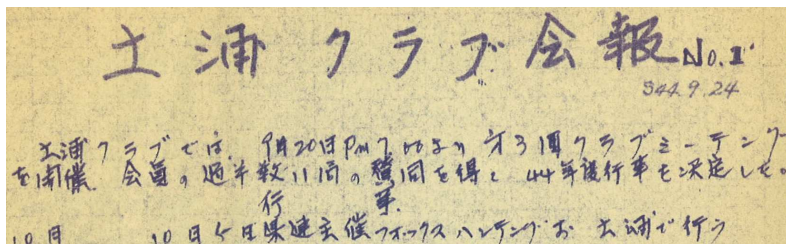 土浦クラブ会報 No.1
S44.9.24
土浦クラブでは、9月20日PM7.00より才3回クラブミーテング
を開催、会員の過半数11局の賛同を得て44年度行事を決定した。
行事
10月 10日 県連主催フォックスハンテングお 土浦で行う